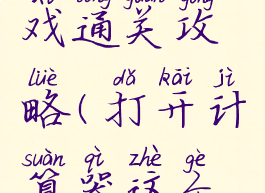 戏通关攻
lüè dǎ kāi jì
略(打开计
suàn qì zhè gè
算器这个